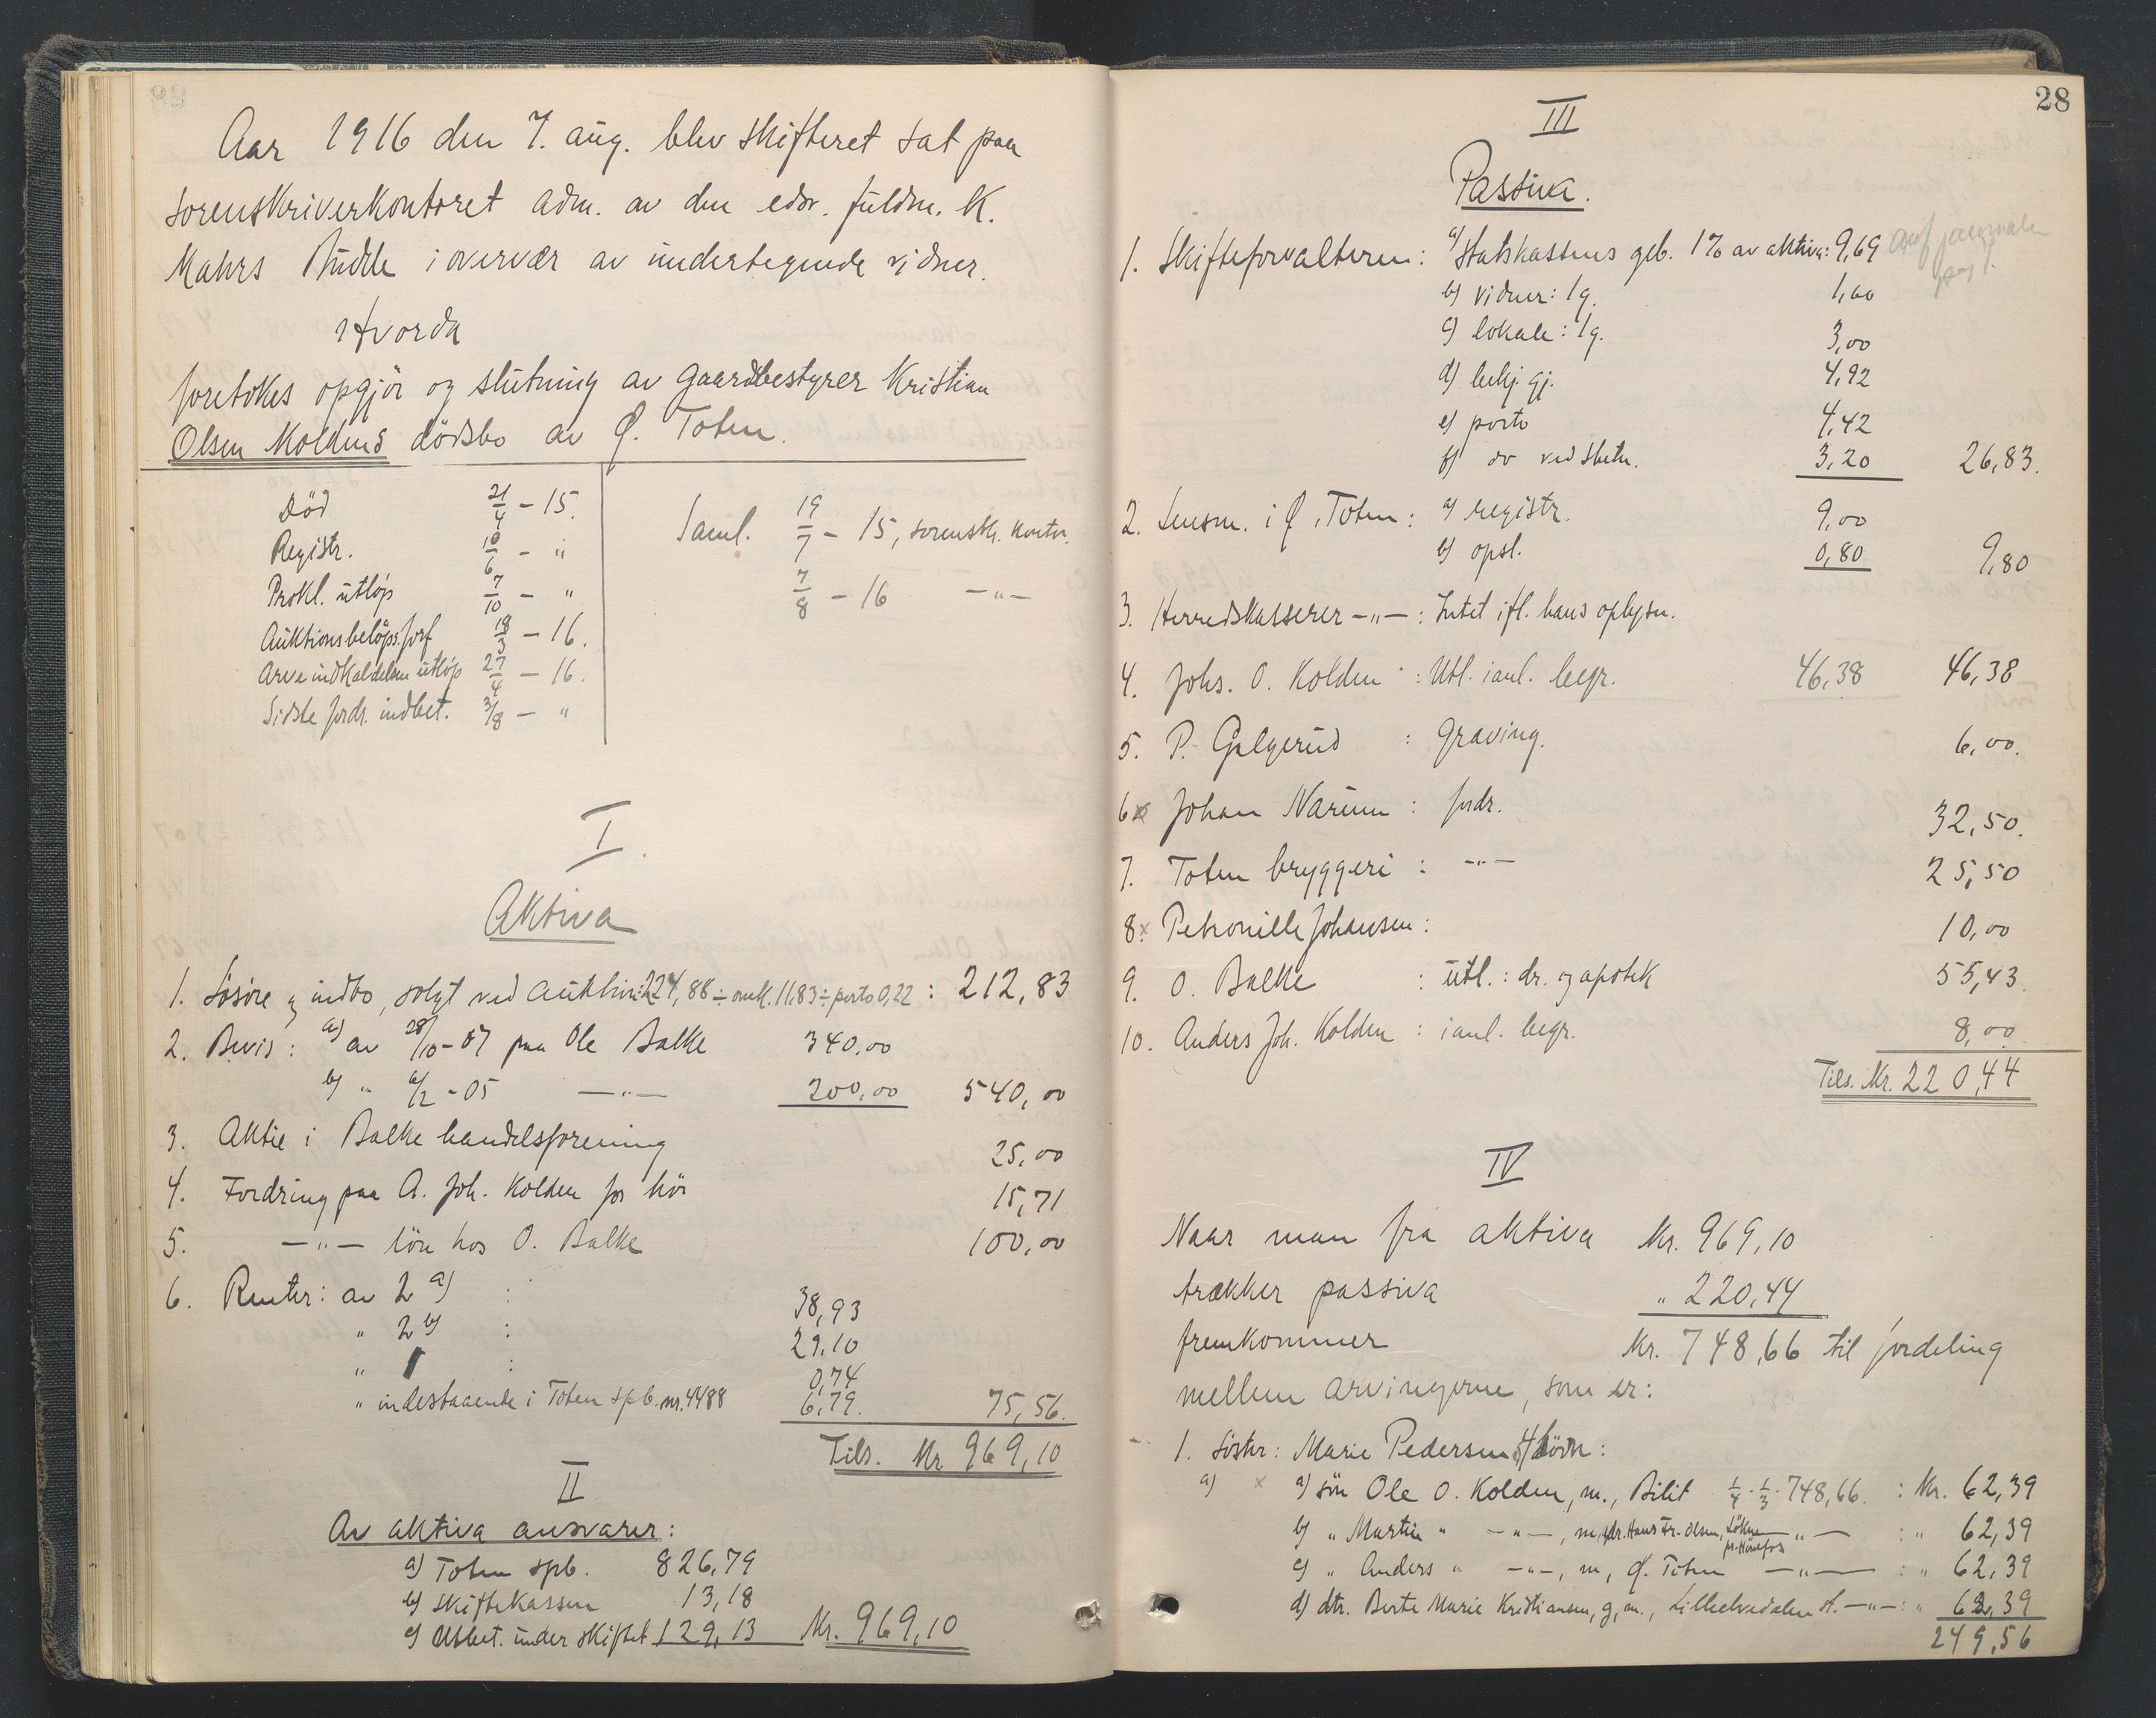 Aar 1916 den 7. aug. blev skifteret sat paa
sorenskriverkontoret adm. av den edsv. fuldm. K.
Mahrs Budde i overvær av undertegnede vidner.
Hvorda
foretokes opgjör og slutning av gaardbestyrer Kristian
Olsen Koldens dödsbo av Ø. Toten.
Död 21/4 - 15.
Registr. 10/6 - "
Prokl. utlöp 7/10 - "
Auktionsbelöps forf 18/3 - 16.
Arveindkaldelsen utlöp 27/4 - 16.
Sidste fordr. indbet. 3/8 - "
Saml. 19/7 - 15, sorenskr. kontor.
7/8 - 16 -"-
I.
Aktiva
1. Lösöre og indbo, solgt ved auktion: 224,88 ÷ omk. 11.83 ÷ porto 0,22 : 212,83
2. Bevis: a) av 28/10-07 paa Ole Balke 340,00
b) " 6/2-05 -"- 200,00 540,00
3. Aktie i Balke handelsforening 25,00
4. Fordring paa A. Joh. Kolden for hör 15,71
5. -"- lön hos O. Balke 100,00
6. Renter: av 2 a) : 38,93
" 2 b) : 29.10
" 1 : 0,74
" indestaaende i Toten spb. nr. 4488 6,79. 75,56.
Tils. Kr. 969,10
II
Av aktiva ansvarer:
a) Toten spb. 826,79
b) Skiftekassen 13,18
c) Utbet. under skiftet 129,13 Kr. 969,10
28
III
Passiva.
1. Skifteforvalteren: a) Statskassens geb. 1% av aktiva: 9,69
b) vidner: 1 g. 1,60
c) lokale: 1 g. 3,00
d) bekj. gj. 4,92
e) porto 4,42
f) do ved slutn. 3,20 26,83.
2. Lensm. i Ø. Toten: a) registr. 9,00
b) opsl. 0,80 9,80
3. Herredskasserer -"-: Intet ifl. hans oplysn.
4. Johs. O. Kolden : Utl. i anl. begr. 46,38 46,38
5. P. Galgerud : graving. 6,00.
6x Johan Narum : fordr. 32,50.
7. Toten bryggeri : -"- 25,50
8x Petronille Johansen : 10,00
9. O. Balke : utl.: dr. og apotek 55,43.
10. Anders Joh. Kolden : i anl. begr. 8,00
Tils. Kr. 220,44
IV
Naar man fra aktiva Kr. 969,10
trækker passiva " 220,44
fremkommer Kr. 748,66 til fordeling
mellem arvingerne, som er:
1. Söster: Marie Pedersens 4 börn:
a) x a) sön Ole O. Kolden, m., Bilit 1/4 · 1/3 · 748,66. : Kr. 62,39
b) " Martin " -"-, m, adr. Hans Fr. Olsen, Lökne pr. Hönefos -"- : " 62,39
c) " Anders " -"-, m, Ø. Toten -"- : " 62,39
d) dtr. Berte Marie Kristiansen, g, m., Lilleelvedalen st. -"-: " 62,39
249,56